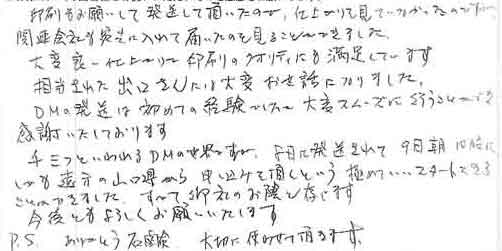 印刷もお願いして発送して頂いたのが、仕上がりを見ていなかったので
関亜会社も宛先に入れて届いたのを見ることができました。
大変良い仕上がりで印刷のクオリティにも満足しています
担当された出口さんには大変お世話になりました。
DMの発送は初めての経験でしたが大変スムーズに行うことができ
感謝いたしております
千三つといわれるDMの世界ですが、8日に発送されて9日朝10時に
しかも遠方の山口県から申し込みを頂くという極めて……スタートをきる
ことができました。すべて御社のお陰と存じます
今後ともよろしくお願いいたします
P.S. ありがとう石鹸 大切に使わせて頂きます。